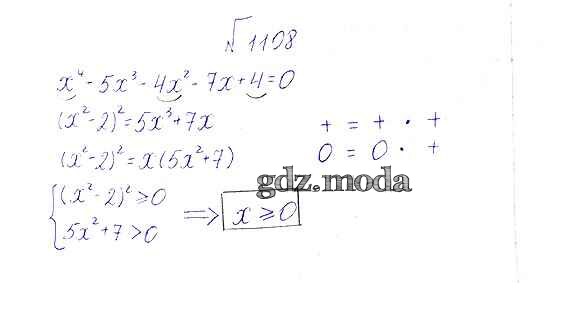 √1108
x⁴ - 5x³ - 4x² - 7x + 4 = 0
(x² - 2)² = 5x³ + 7x
(x² - 2)² = x(5x² + 7)
{(x² - 2)² ≥ 0
5x² + 7 > 0
⟹ x ≥ 0
+ = + · +
0 = 0 · +
gdz.moda